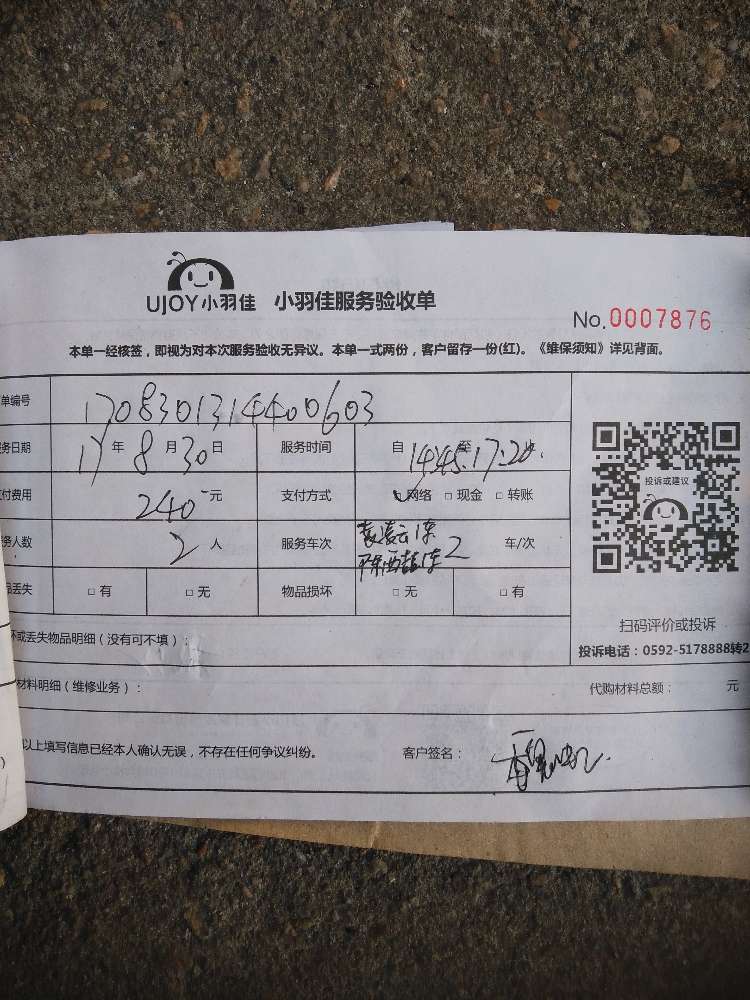 UJOY小羽佳 小羽佳服务验收单
No.0007876
本单一经核签，即视为对本次服务验收无异议。本单一式两份，客户留存一份(红)。《维保须知》详见背面。
单编号 1708301314400603
务日期 17年8月30日 服务时间 自14:45至17:20止
付费用 240元 支付方式 网络 □现金 □转账
投诉或建议
务人数 2人 服务车次 2 车/次
品丢失 □有 □无 物品损坏 □无 □有
扫码评价或投诉
坏或丢失物品明细（没有可不填）：
投诉电话：0592-5178888转2
材料明细（维修业务）： 代购材料总额： 元
以上填写信息已经本人确认无误，不存在任何争议纠纷。 客户签名：